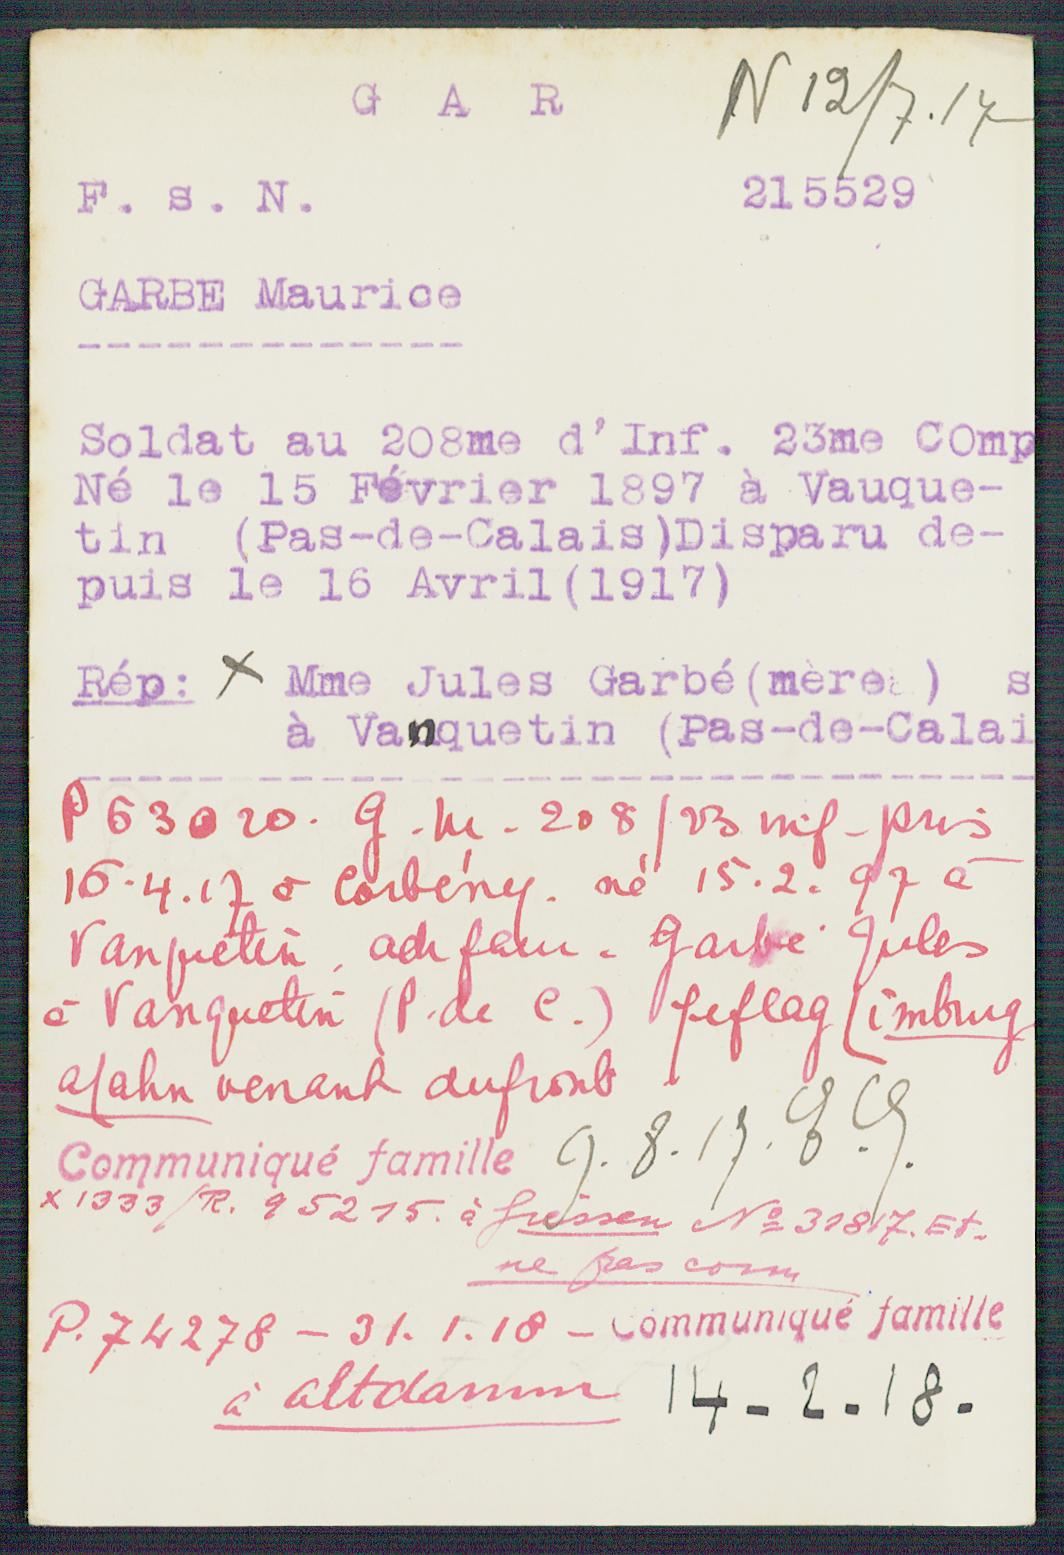 G A R N 12/7.17
F. s. N. 215529
GARBE Maurice
Soldat au 208me d'Inf. 23me COmp
Né le 15 Février 1897 à Vauque-
tin (Pas-de-Calais)Disparu de-
puis le 16 Avril(1917)
Rép: X Mme Jules Garbé(mère ) s
à Vanquetin (Pas-de-Calai
P 63020. G. M. 208/23 inf. pris
16.4.17 à Corbény. né 15.2.97 à
Vanquetin, adr fam. Garbé Jules
à Vanquetin (P. de C.) Limburg
a/Lahn venant du front
Communiqué famille 9.8.17.
x 1333/R. 95215. à Giessen No 31817. Et.
ne pas com
P. 74278 - 31.1.18 - Communiqué famille
à Altdamm 14-2-18.